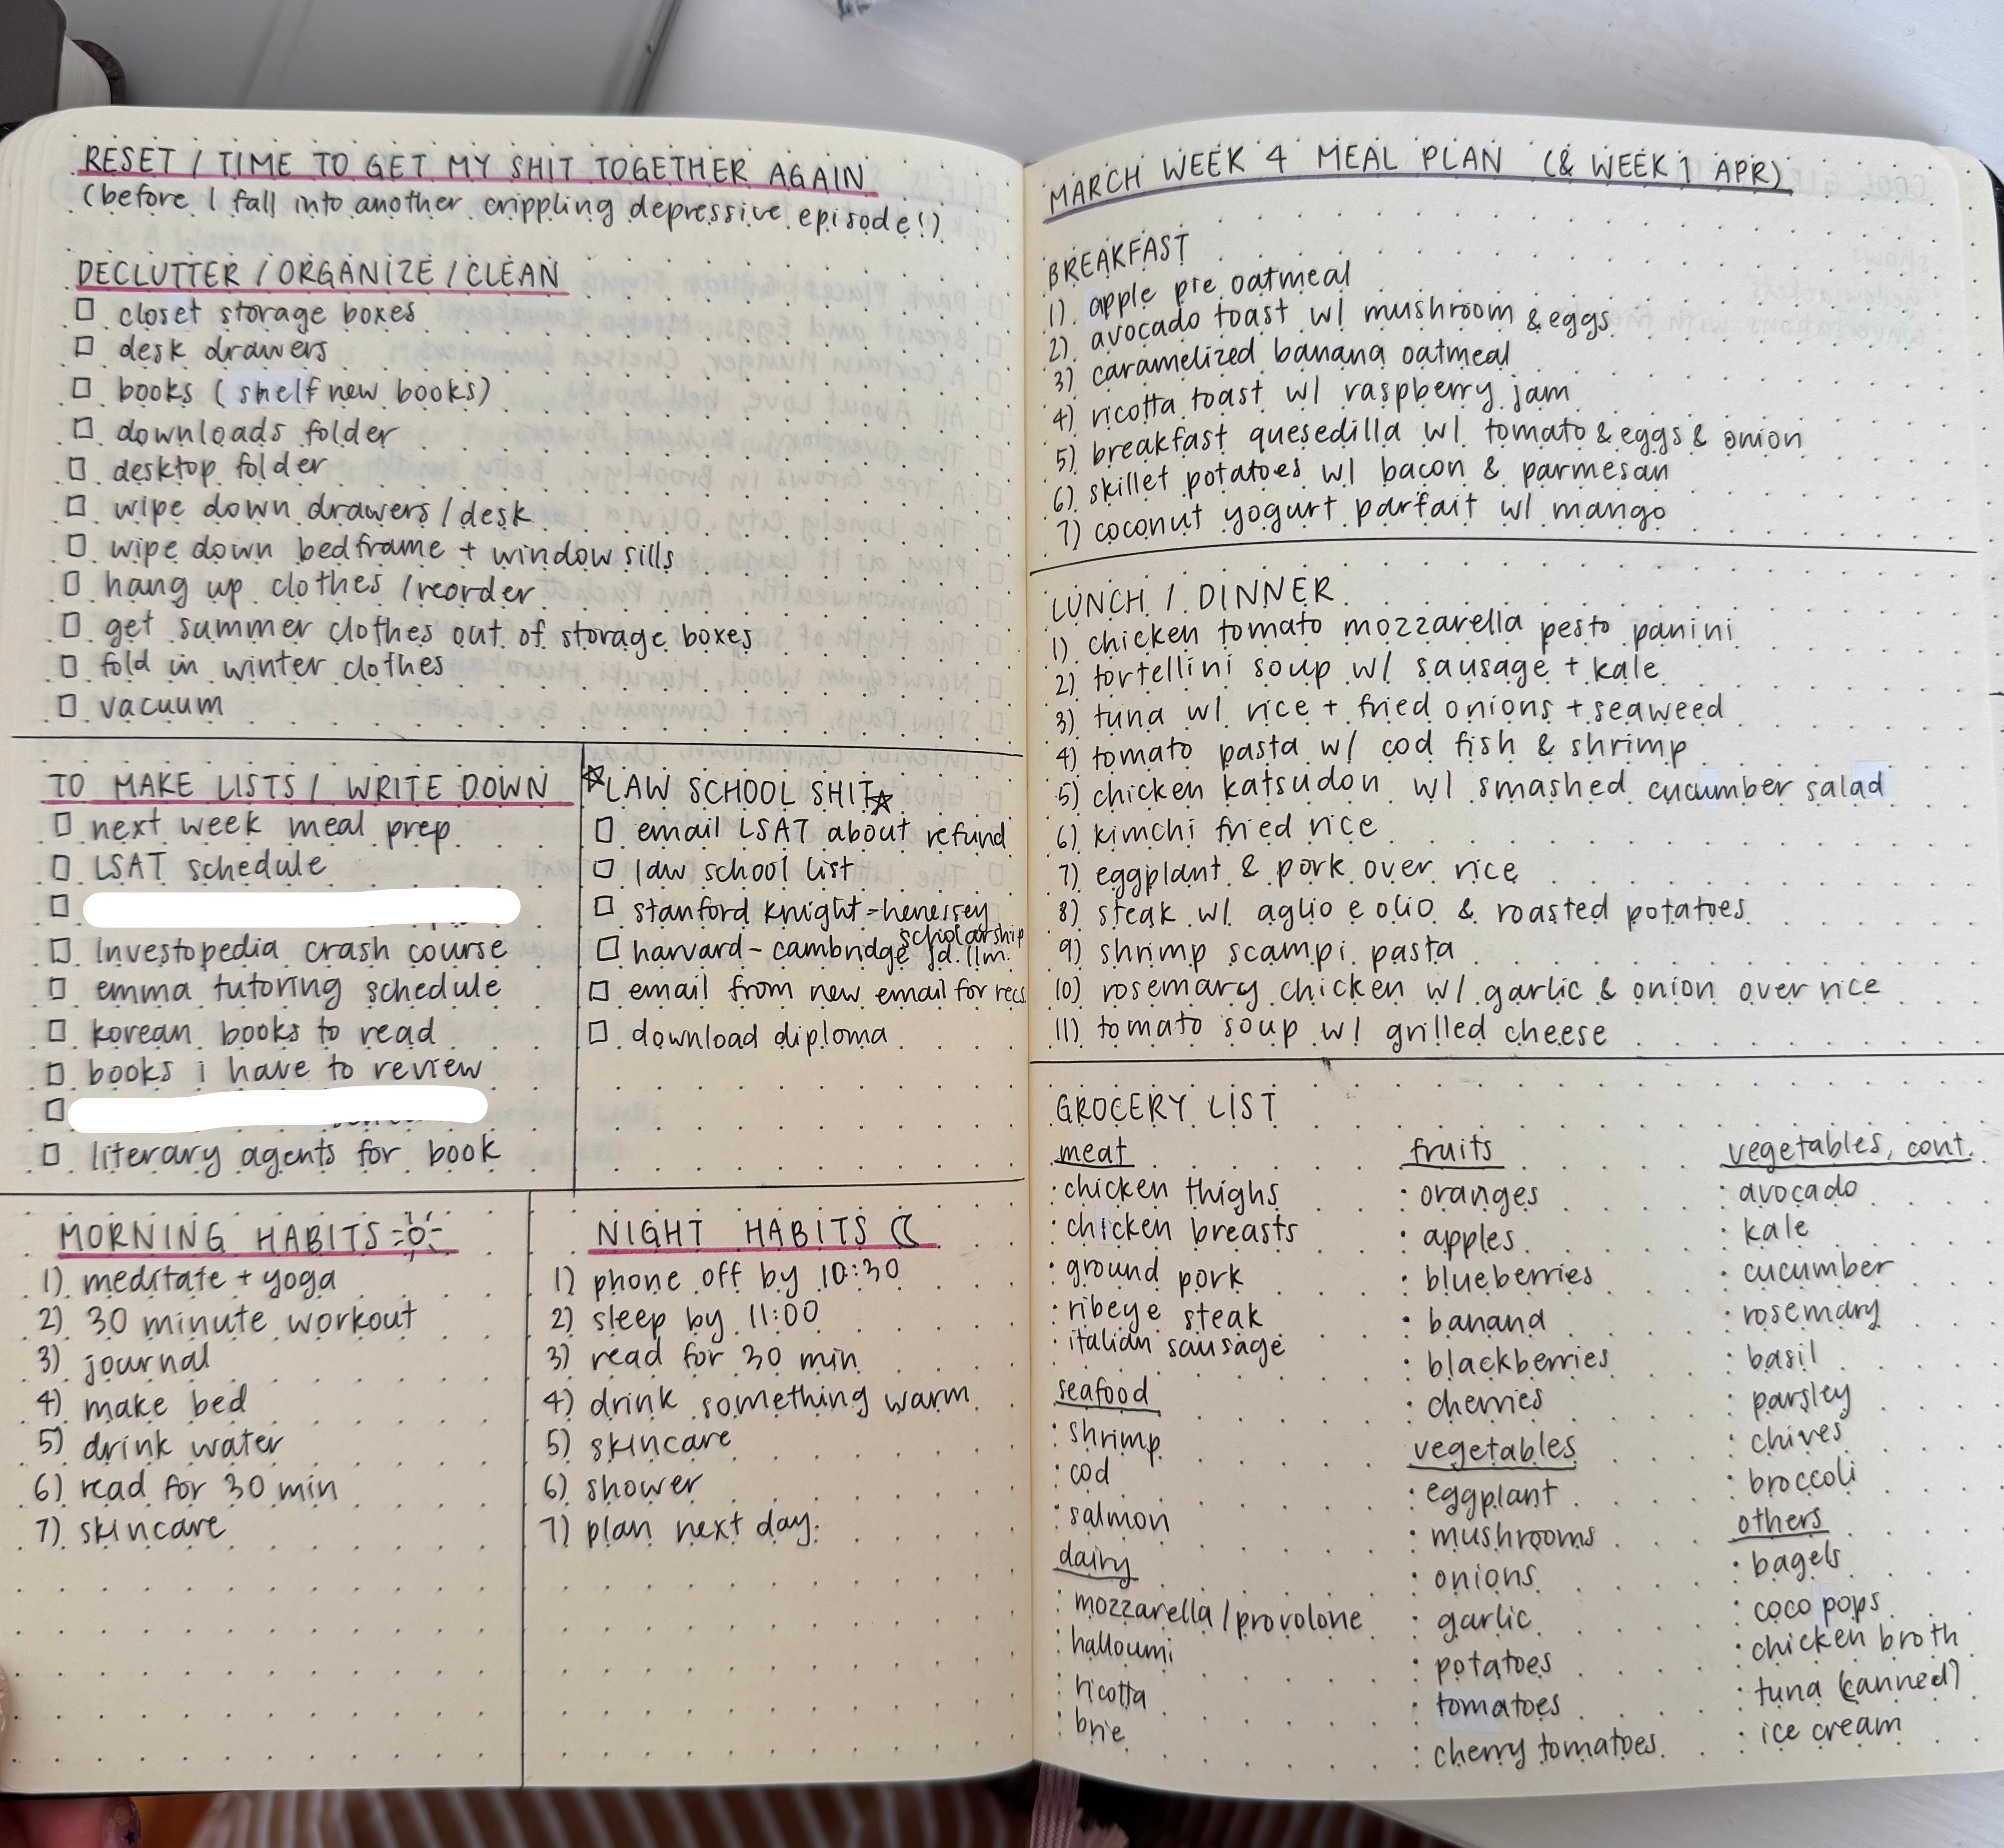 RESET / TIME TO GET MY SHIT TOGETHER AGAIN
(before I fall into another crippling depressive episode!)
DECLUTTER / ORGANIZE / CLEAN
closet storage boxes
desk drawers
books (shelf new books)
downloads folder
desktop folder
wipe down drawers / desk
wipe down bedframe + window sills
hang up clothes / reorder
get summer clothes out of storage boxes
fold in winter clothes
vacuum
TO MAKE LISTS / WRITE DOWN
next week meal prep
LSAT schedule
Investopedia crash course
emma tutoring schedule
korean books to read
books i have to review
literary agents for book
☆LAW SCHOOL SHIT☆
email LSAT about refund
law school list
stanford knight-henessey
scholarship
harvard-cambridge jd.llm.
email from new email for recs
download diploma
MORNING HABITS
1) meditate + yoga
2) 30 minute workout
3) journal
4) make bed
5) drink water
6) read for 30 min
7) skincare
NIGHT HABITS
1) phone off by 10:30
2) sleep by 11:00
3) read for 30 min
4) drink something warm
5) skincare
6) shower
7) plan next day.
MARCH WEEK 4 MEAL PLAN (& WEEK 1 APR)
BREAKFAST
1) apple pie oatmeal
2) avocado toast w/ mushroom & eggs
3) caramelized banana oatmeal
4) ricotta toast w/ raspberry jam
5) breakfast quesedilla w/ tomato & eggs & onion
6) skillet potatoes w/ bacon & parmesan
7) coconut yogurt parfait w/ mango
LUNCH / DINNER
1) chicken tomato mozzarella pesto panini
2) tortellini soup w/ sausage + kale
3) tuna w/ rice + fried onions + seaweed
4) tomato pasta w/ cod fish & shrimp
5) chicken katsudon w/ smashed cucumber salad
6) kimchi fried rice
7) eggplant & pork over rice
8) steak w/ aglio e olio & roasted potatoes
9) shrimp scampi pasta
10) rosemary chicken w/ garlic & onion over rice
11) tomato soup w/ grilled cheese
GROCERY LIST
meat
· chicken thighs
· chicken breasts
· ground pork
· ribeye steak
· italian sausage
seafood
· shrimp
· cod
· salmon
dairy
· mozzarella / provolone
· halloumi
· ricotta
· brie
fruits
· oranges
· apples
· blueberries
· banana
· blackberries
· cherries
vegetables
· eggplant
· mushrooms
· onions
· garlic
· potatoes
· tomatoes
· cherry tomatoes
vegetables, cont.
· avocado
· kale
· cucumber
· rosemary
· basil
· parsley
· chives
· broccoli
others
· bagels
· coco pops
· chicken broth
· tuna (canned)
· ice cream